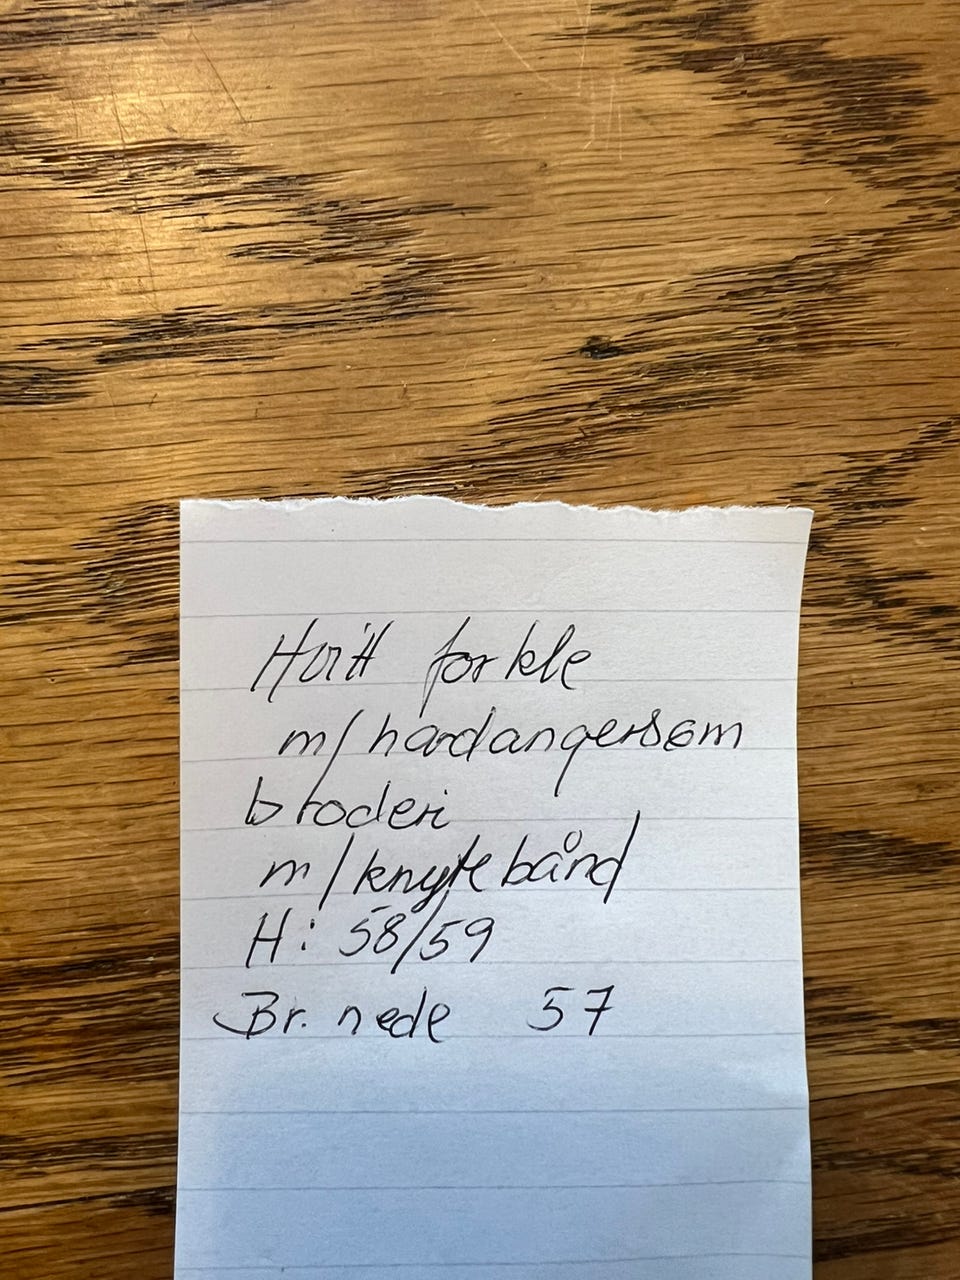 Hvitt forkle
m/hardangersøm
broderi
m/knytebånd
H: 58/59
Br. nede 57